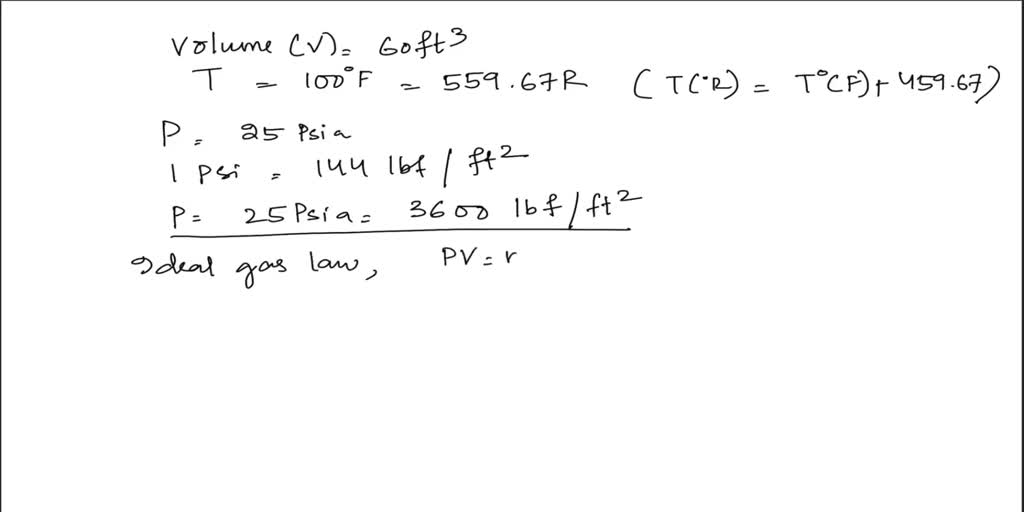 Volume (V) = 60ft³
T = 100°F = 559.67R (T(°R) = T°(F) + 459.67)
P = 25 Psia
1 Psi = 144 lbf / ft²
P = 25 Psia = 3600 lbf / ft²
Ideal gas law, PV = r